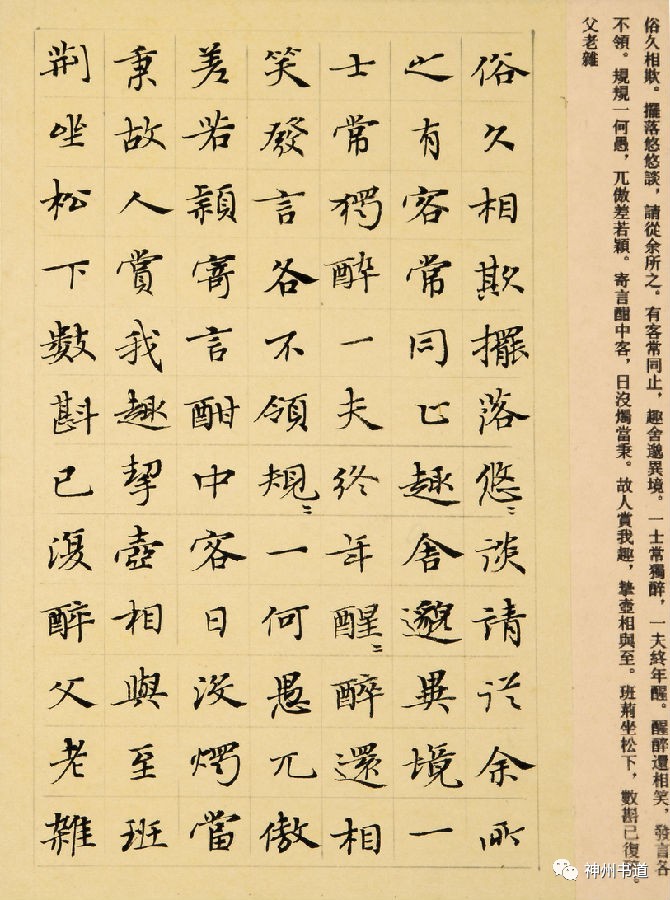 俗久相欺。擺落悠悠談，請從余所之。有客常同止，趣舍邈異境。一士常獨醉，一夫終年醒。醒醉還相笑，發言各
不領。規規一何愚，兀傲差若穎。寄言酣中客，日沒燭當秉。故人賞我趣，挈壺相與至。班荊坐松下，數斟已復醉。
父老雜
俗久相欺擺落悠〻談請從余所
之有客常同止趣舍邈異境一
士常獨醉一夫終年醒〻醉還相
笑發言各不領規〻一何愚兀傲
差若穎寄言酣中客日沒燭當
秉故人賞我趣挈壺相與至班
荊坐松下數斟已復醉父老雜
神州书道